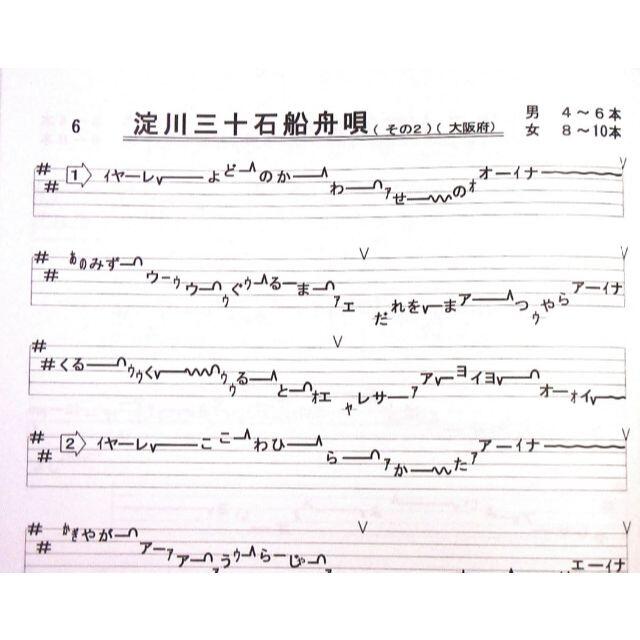 6 淀川三十石船舟唄(その2)(大阪府)
男 4〜6本
女 8〜10本
1 イヤーレ よどーのかー わーァせーのォオーイナー
あのみずーウーゥウーゥぐゥーるーまーァエ だれをーまアーつゥやらアーイナ
くるーゥゥくーゥゥるーとーオエャレサーァアーヨイヨーオーォイー
2 イヤーレ ここーわひー らーァかーたァアーイナー
かぎやがーアーァアーうゥーらーじゅー エーイナ